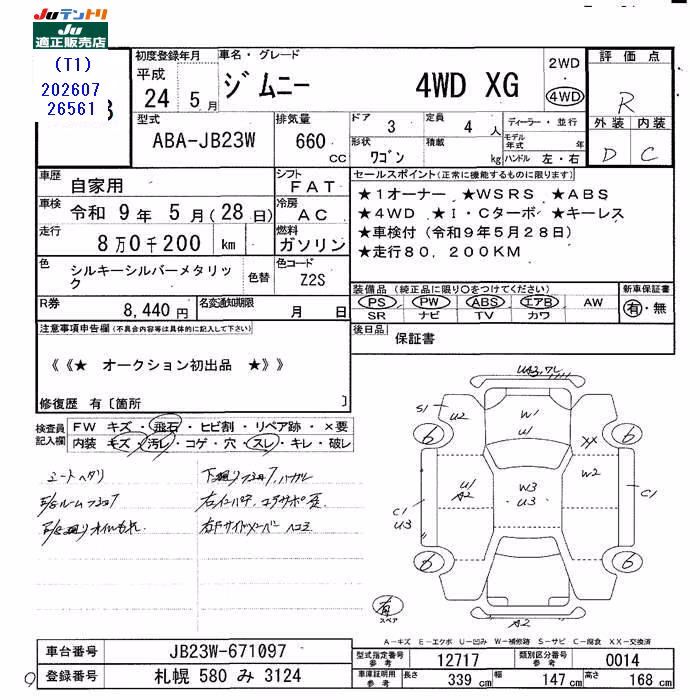 Juテントリ
Ju
適正販売店
(T1)
202607
26561
初度登録年月
平成
24 5 月
車名・グレード
ジムニー 4WD XG
2WD
・
4WD
評価点
R
外装 内装
D C
型式
ABA-JB23W
排気量
660 cc
ドア 3
定員 4 人
形状 ワゴン
積載 kg
ディーラー・並行
モデル年式 年
ハンドル 左・右
車歴 自家用
車検 令和 9 年 5 月 ( 28 日)
走行 8 万 0 千 200 km
シフト FAT
冷房 AC
燃料 ガソリン
色 シルキーシルバーメタリック
色替
色コード Z2S
R券 8,440 円
名変通知期限 月 日
セールスポイント(正常に機能するものに限ります)
★1オーナー ★WSRS ★ABS
★4WD ★I・Cターボ ★キーレス
★車検付(令和9年5月28日)
★走行80,200KM
装備品 (純正品に限り○をつけてください)
PS PW ABS エアB AW
SR ナビ TV カワ
新車保証書
有・無
後日品 保証書
注意事項申告欄(不具合内容等は具体的に記入して下さい)
《《★ オークション初出品 ★》》
修復歴 有〔箇所 〕
検査員記入欄
FW キズ・飛石・ヒビ割・リペア跡・×要
内装 キズ・汚レ・コゲ・穴・スレ・キレ・破レ
シートヘタリ
下廻りフショク,ハガレ
U43,ワレ
S1
U2
W1
U1
XX
6
6
U1
A2
W3
U3
W2
C1
U3
C1
6
6
有
スペア
A2
A-キズ E-エクボ U-凹み W-補修跡 S-サビ C-腐食 XX-交換済
車台番号 JB23W-671097
登録番号 札幌 580 み 3124
型式指定番号 参考 12717
類別区分番号 参考 0014
車庫証明用 参考 長さ 339 cm 幅 147 cm 高さ 168 cm